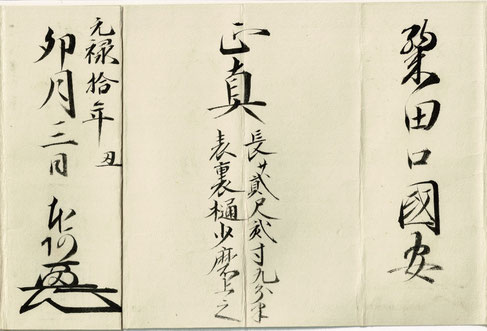 粟田口國安
正真
長サ貳尺貳寸九分半
表裏樋少磨上之
元禄拾年丑
卯月三日 本阿